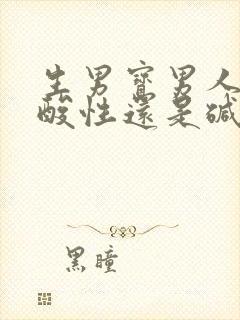 生男寶男人
酸性還是碱
黑瞳